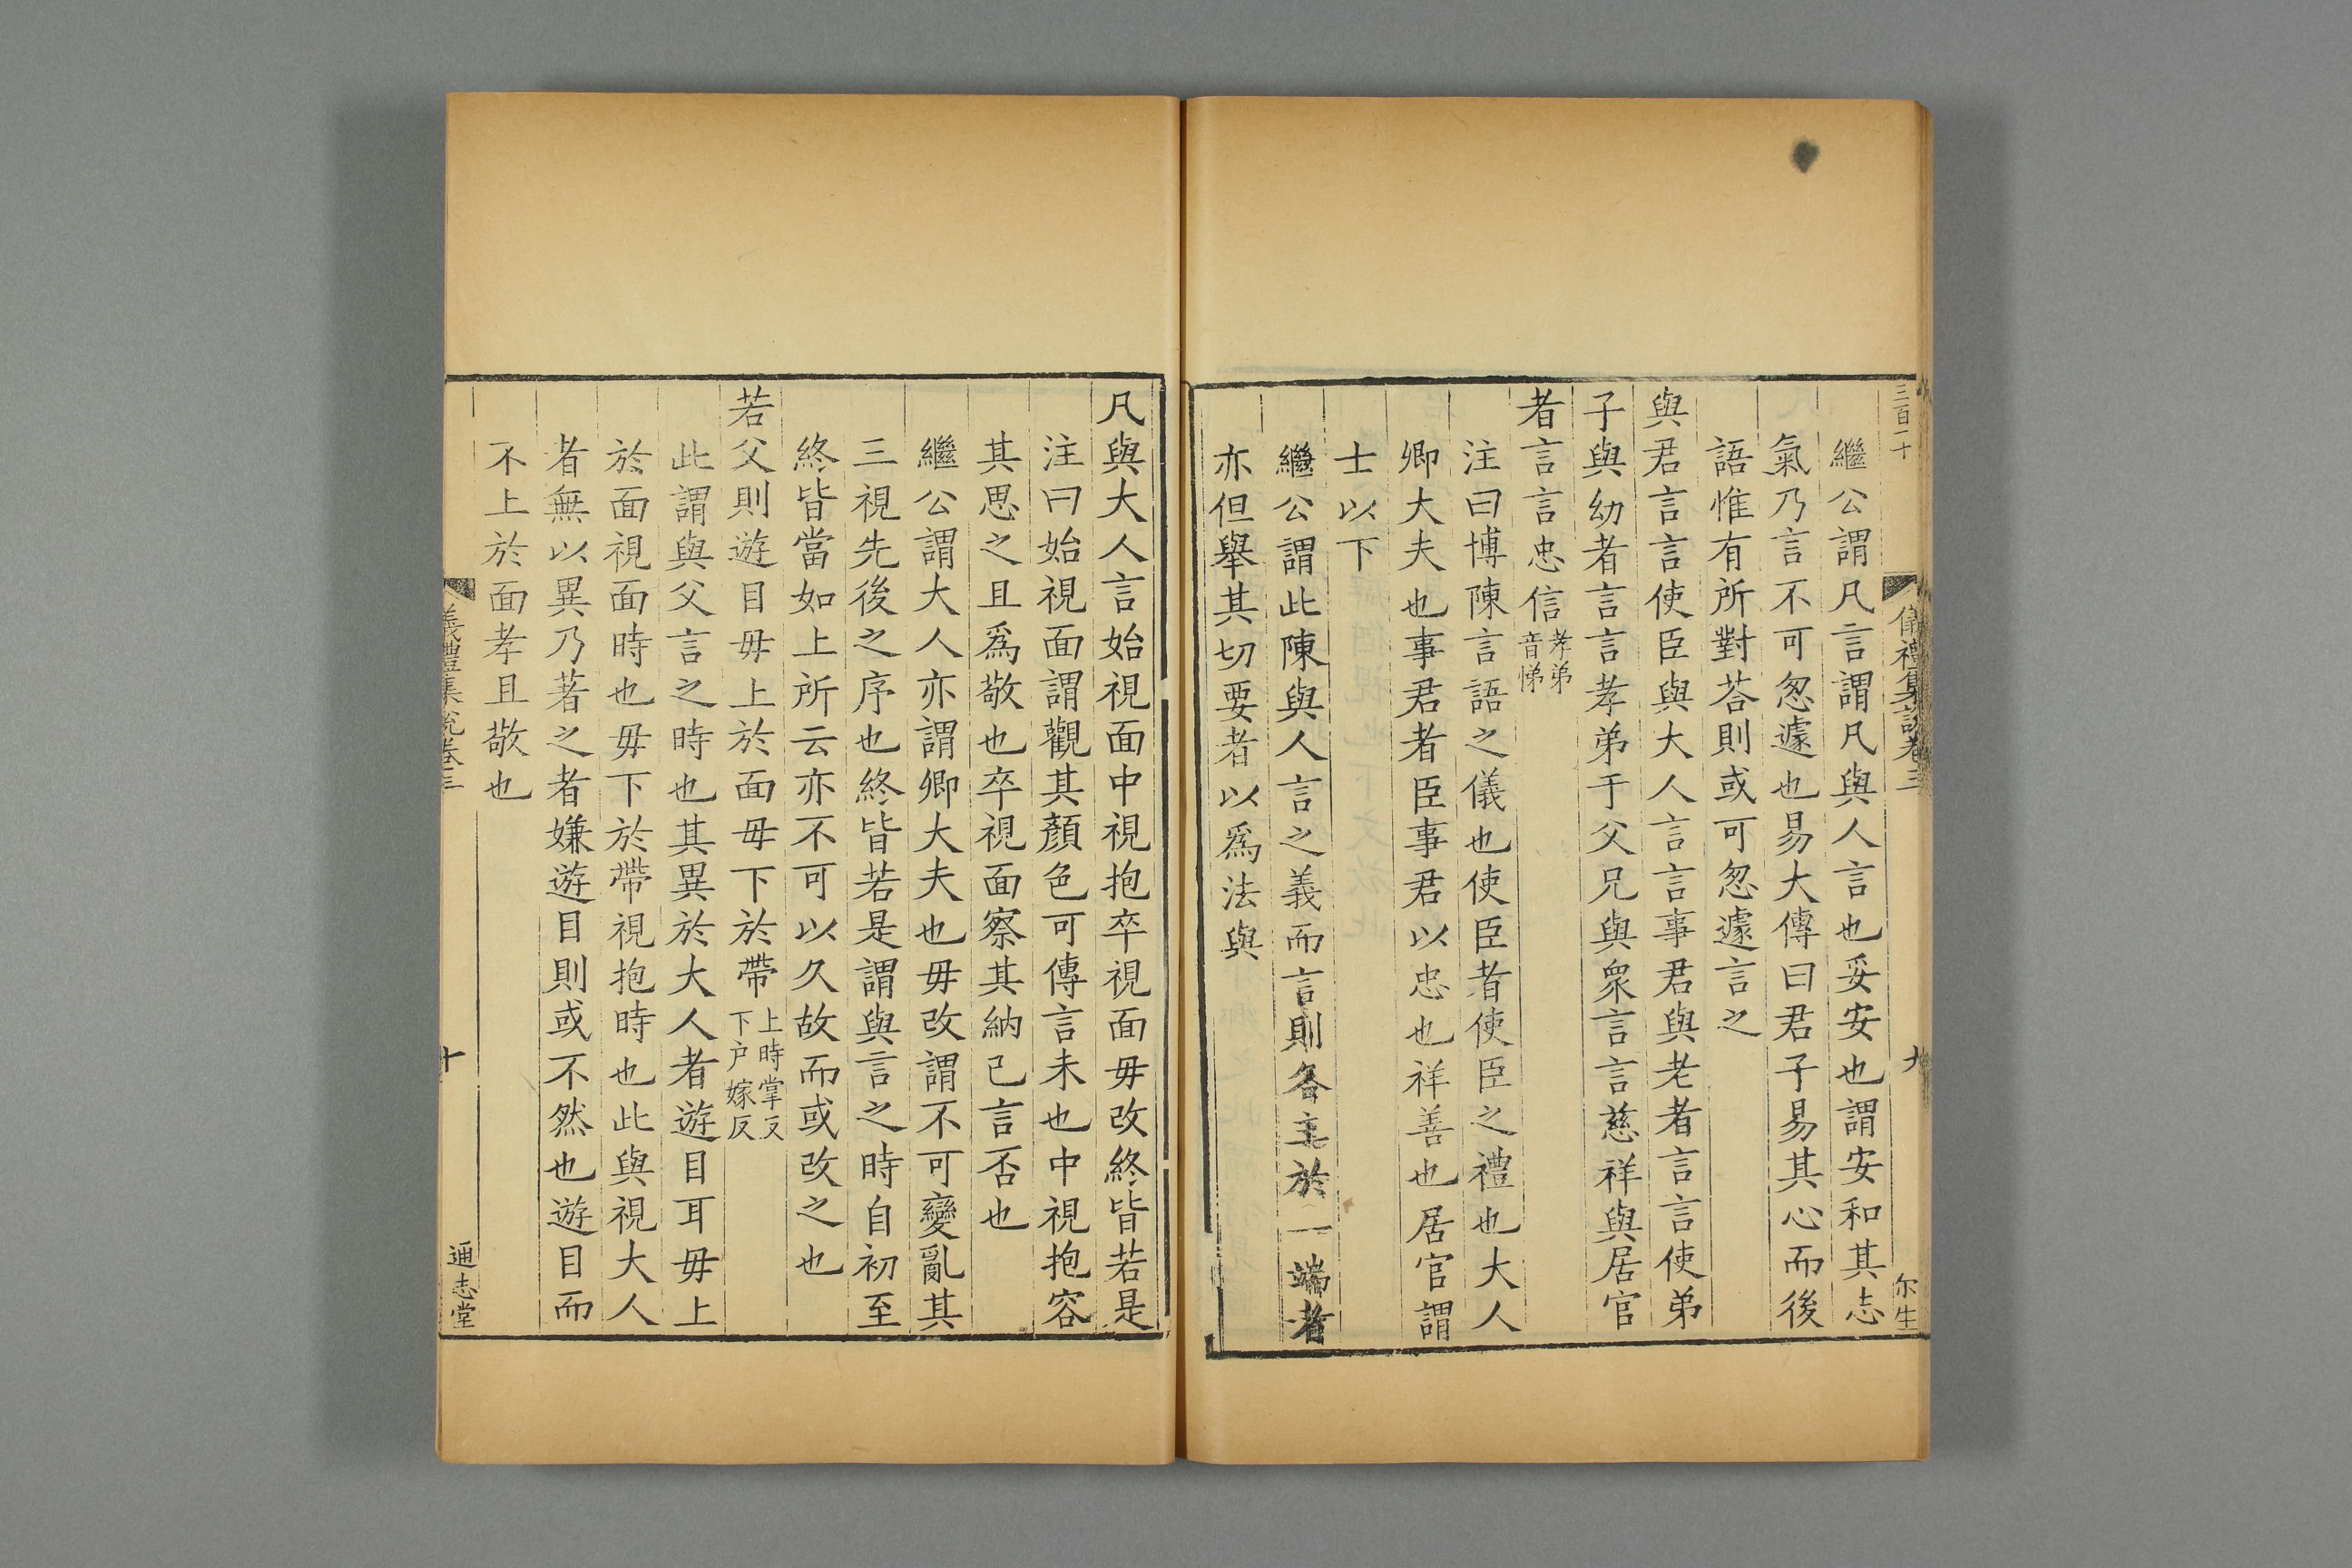 三百一十
儀禮集說卷三
九
尔生
繼公謂凡言謂凡與人言也妥安也謂安和其志
氣乃言不可怱遽也易大傳曰君子易其心而後
語惟有所對荅則或可怱遽言之
與君言言使臣與大人言言事君與老者言言使弟
子與幼者言言孝弟于父兄與衆言言慈祥與居官
者言言忠信孝弟音悌
注曰博陳言語之儀也使臣者使臣之禮也大人
卿大夫也事君者臣事君以忠也祥善也居官謂
士以下
繼公謂此陳與人言之義而言則各主於一端者
亦但舉其切要者以爲法與
凡與大人言始視面中視抱卒視面毋改終皆若是
注曰始視面謂觀其顏色可傳言未也中視抱容
其思之且爲敬也卒視面察其納己言否也
繼公謂大人亦謂卿大夫也毋改謂不可變亂其
三視先後之序也終皆若是謂與言之時自初至
終皆當如上所云亦不可以久故而或改之也
若父則遊目毋上於面毋下於帶上時掌反下户嫁反
此謂與父言之時也其異於大人者遊目耳毋上
於面視面時也毋下於帶視抱時也此與視大人
者無以異乃著之者嫌遊目則或不然也遊目而
不上於面孝且敬也
儀禮集說卷三
十
通志堂